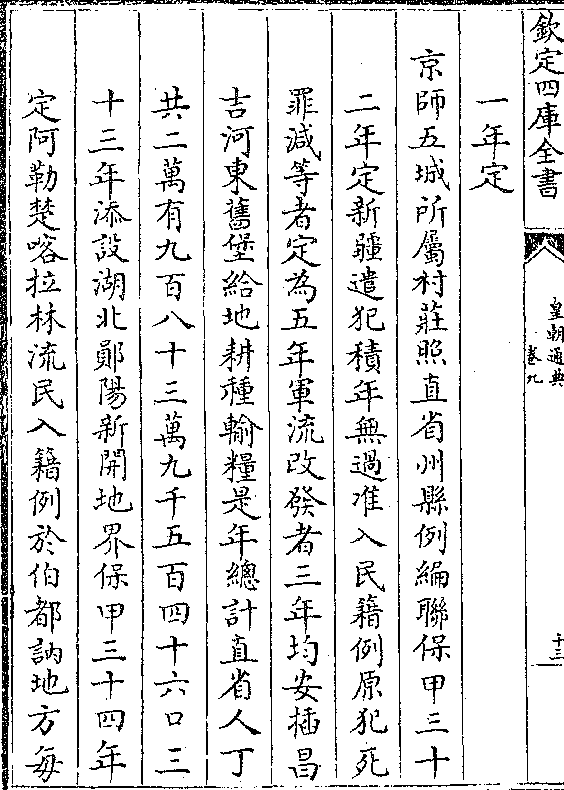 欽定四庫全書
皇朝通典
卷九
十三
一年定
京師五城所屬村莊照直省州縣例編聯保甲三十
二年定新疆遣犯積年無過准入民籍例原犯死
罪減等者定為五年軍流改發者三年均安插昌
吉河東舊堡給地耕種輸糧是年總計直省人丁
共二萬有九百八十三萬九千五百四十六口三
十三年添設湖北鄖陽新開地界保甲三十四年
定阿勒楚喀拉林流民入籍例於伯都訥地方每